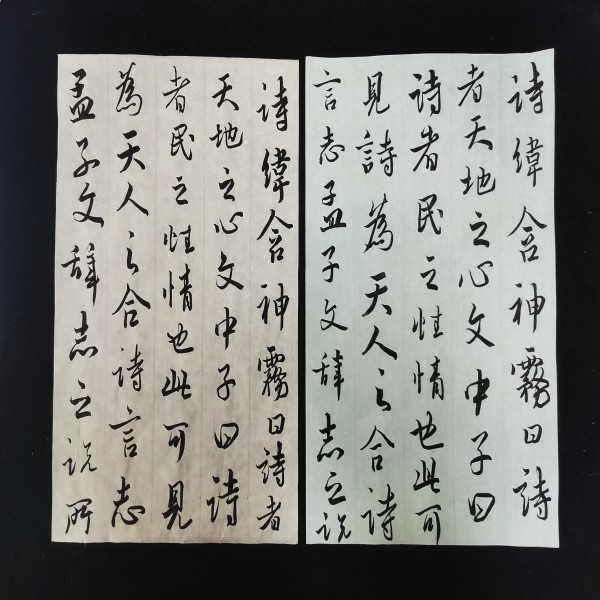 詩緯含神霧曰詩
者天地之心文中子曰
詩者民之性情也此可
見詩為天人之合詩
言志孟子文辭志之説
詩緯含神霧曰詩者
天地之心文中子曰詩
者民之性情也此可見
為天人之合詩言志
孟子文辭志之説所